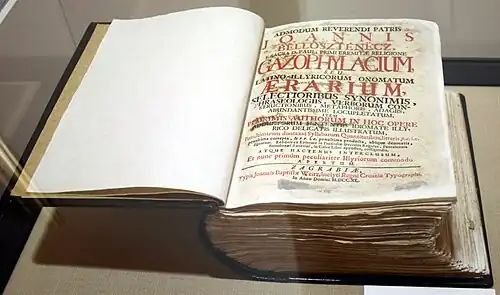 ADMODUM REVERENDI PATRIS
JOANNIS
BELLOSZTENECZ,
E SACRA D. PAULI PRIMI EREMITÆ RELIGIONE
GAZOPHYLACIUM,
SEU
LATINO-ILLYRICORUM ONOMATUM
ÆRARIUM,
SELECTIORIBUS SYNONIMIS,
PHRASEOLOGIIS, VERBORUM CON-
STRUCTIONIBUS, METAPHORIS, ADAGIIS,
ABUNDANTISSIME LOCUPLETATUM,
ITEM
PLURIMIS AUTHORUM IN HOC OPERE
SENTENTIIS IDIOMATE ILLY-
RICO DELICATIS ILLUSTRATUM,
ATQUE HACTENUS INTERCLUSUM,
Et nunc primum peculiariter Illyriorum commodo
APERTUM.
ZAGRABIÆ,
Typis Joannis Baptistæ Weitz, Inclyti Regni Croatiæ Typographi,
Anno Domini M.DCC.XL.